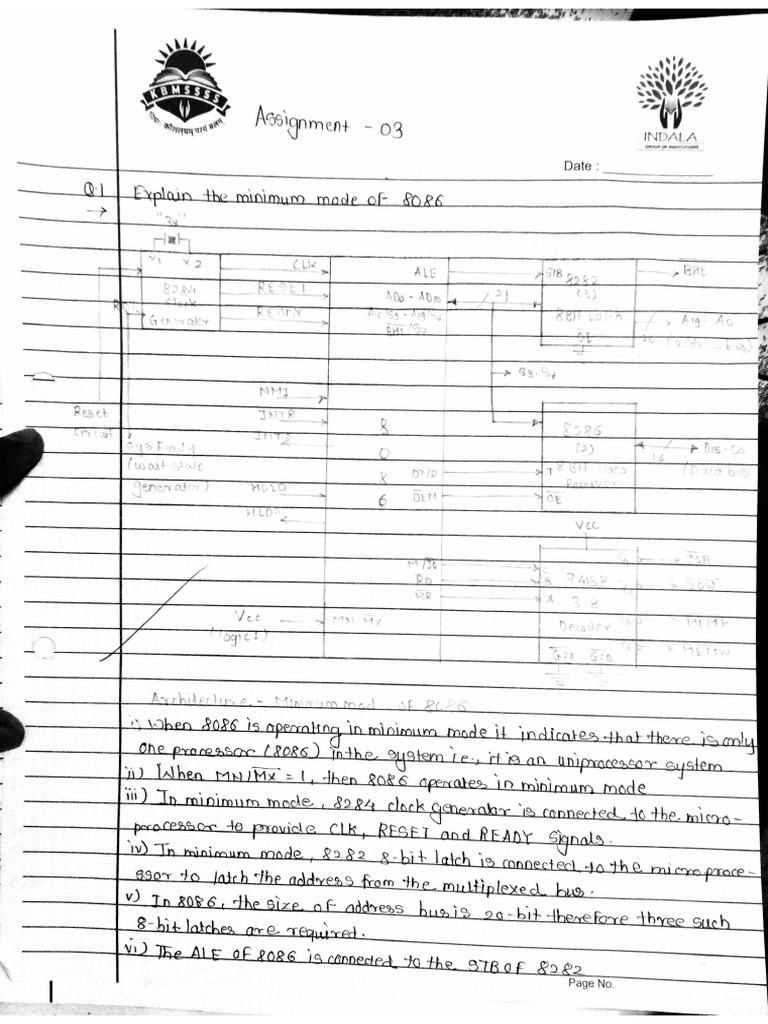 KBMSSSS
INDALA
GROUP OF INSTITUTIONS
Assignment - 03
Date :
Q.1 Explain the minimum mode of 8086
→
X1 X2
8284
Clock
Generator
CLK
RESET
READY
ALE
AD0 - AD15
A16/S3 - A19/S6
BHE/S7
21
STB 8282
(3)
8 Bit Latch
OE
BHE
A19 - A0
20 (address bus)
Reset
Circuit
(wait state
generator)
NMI
INTR
HOLD
8
0
8
6
DT/R
DEN
8286
(2)
T 8 Bit Trans
Receiver
OE
D15 - D0
16
(Data bus)
Vcc
M/IO
RD
WR
C
B
A
74138
3:8
Decoder
G2A G2B
IOR
IOW
MEMR
MEMW
Vcc
(logic 1)
MN/MX
Architecture - Minimum mode of 8086
i) When 8086 is operating in minimum mode it indicates that there is only
one processor (8086) in the system i.e., it is an uniprocessor system
ii) When MN/M̅X̅ = 1, then 8086 operates in minimum mode
iii) In minimum mode, 8284 clock generator is connected to the micro-
processor to provide CLK, RESET and READY signals.
iv) In minimum mode, 8282 8-bit latch is connected to the microproce-
ssor to latch the address from the multiplexed bus.
v) In 8086, the size of address bus is 20-bit therefore three such
8-bit latches are required.
vi) The ALE of 8086 is connected to the STB of 8282
Page No.